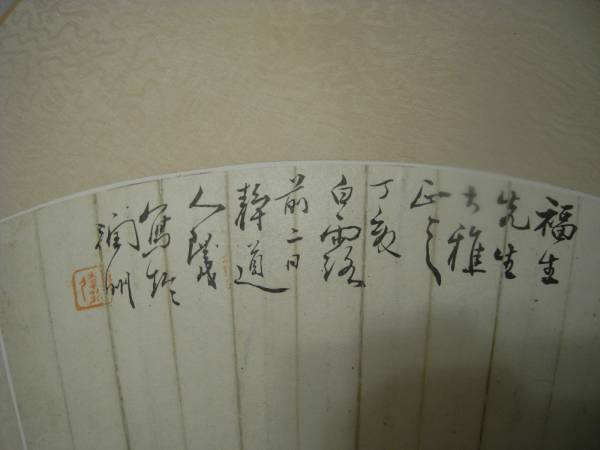 福生
先生
大雅
正之
丁亥
白露
前二日
靜道
人
寫於
潤州